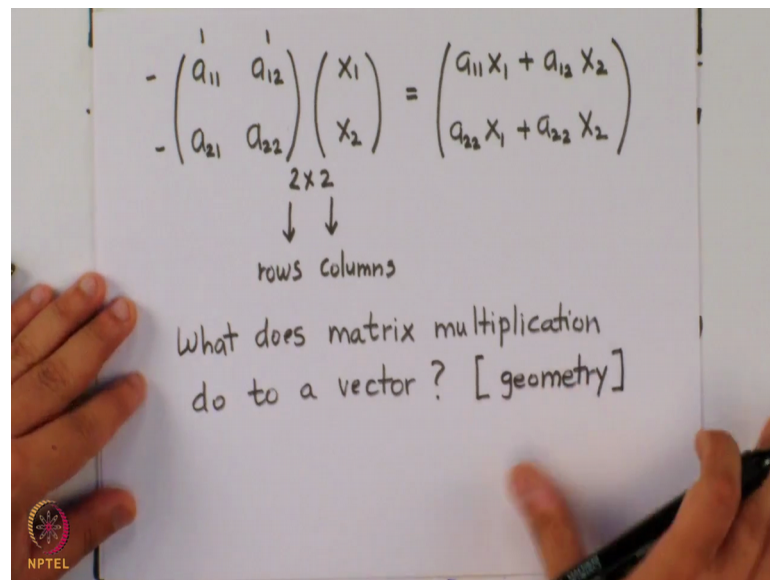 - ( a₁₁ a₁₂ ) ( x₁ ) = ( a₁₁ x₁ + a₁₂ x₂ )
- ( a₂₁ a₂₂ ) ( x₂ ) ( a₂₂ x₁ + a₂₂ x₂ )
2 x 2
↓ ↓
rows columns
What does matrix multiplication
do to a vector ? [ geometry ]
NPTEL